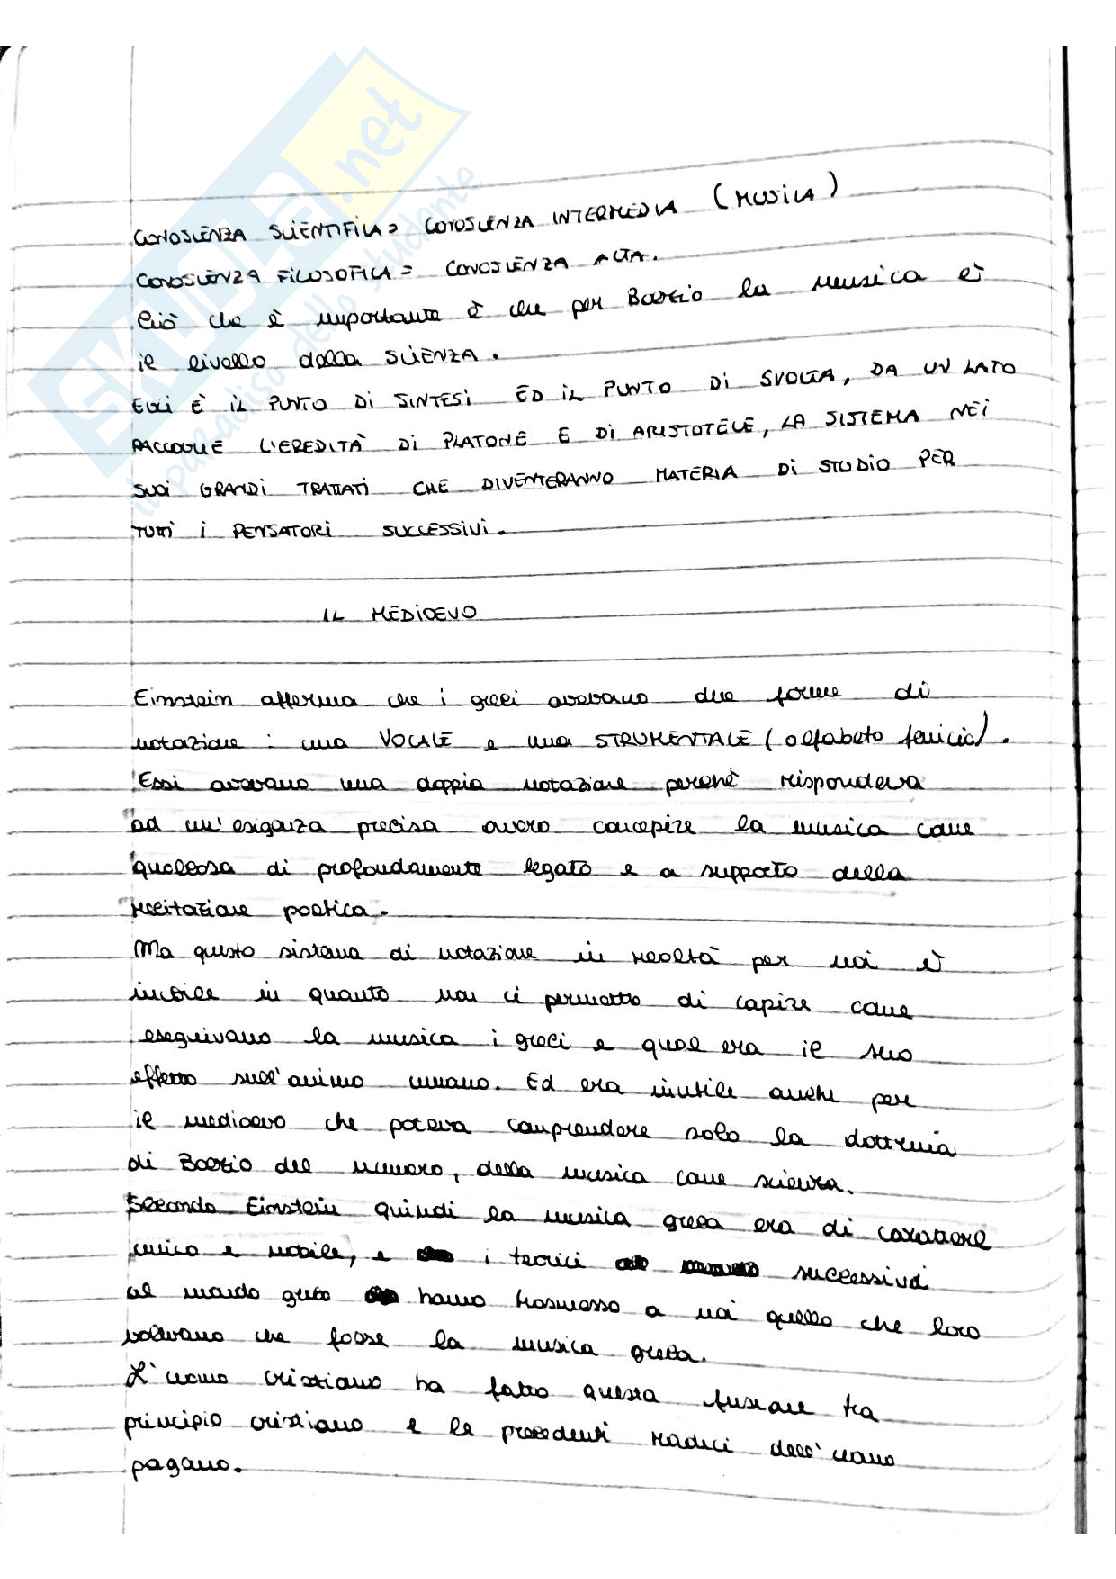 SKUOLA.net
il paradiso dello studente
CONOSCENZA SCIENTIFICA = CONOSCENZA INTERMEDIA (MUSICA)
CONOSCENZA FILOSOFICA = CONOSCENZA ALTA.
Ciò che è importante è che per Boezio la musica è
il livello della SCIENZA.
EGLI È IL PUNTO DI SINTESI ED IL PUNTO DI SVOLTA, DA UN LATO
RACCOGLIE L'EREDITÀ DI PLATONE E DI ARISTOTELE, LA SISTEMA NEI
SUOI GRANDI TRATTATI CHE DIVENTERANNO MATERIA DI STUDIO PER
TUTTI I PENSATORI SUCCESSIVI.
IL MEDIOEVO
Einstein afferma che i greci avevano due forme di
notazione: una VOCALE e una STRUMENTALE (alfabeto fenicio).
Essi avevano una doppia notazione perché rispondeva
ad un'esigenza precisa ovvero concepire la musica come
qualcosa di profondamente legato e a supporto della
recitazione poetica.
Ma questo sistema di notazione in realtà per noi è
inutile in quanto non ci permette di capire come
eseguivano la musica i greci e qual era il suo
effetto sull'animo umano. Ed era inutile anche per
il medioevo che poteva comprendere solo la dottrina
di Boezio del numero, della musica come scienza.
Secondo Einstein quindi la musica greca era di carattere
unico e nobile, e i teorici successivi
al mondo greco hanno trasmesso a noi quello che loro
volevano che fosse la musica greca.
L'uomo cristiano ha fatto questa fusione tra
principio cristiano e le precedenti radici dell'uomo
pagano.